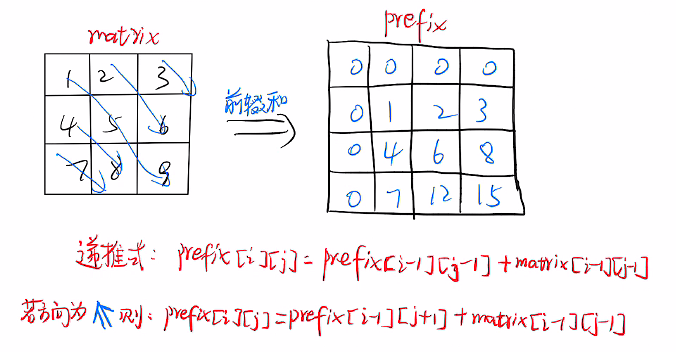 matrix
prefix
1 2 3
4 5 6
7 8 9
前缀和
0 0 0 0
0 1 2 3
0 4 6 8
0 7 12 15
递推式: prefix[i][j] = prefix[i-1][j-1] + matrix[i-1][j-1]
若方向为↖则: prefix[i][j] = prefix[i-1][j+1] + matrix[i-1][j-1]